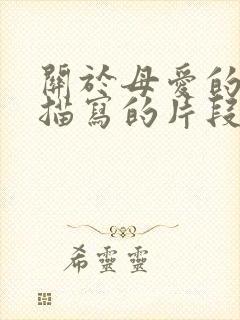 關於母愛的
描寫的片段
希靈靈